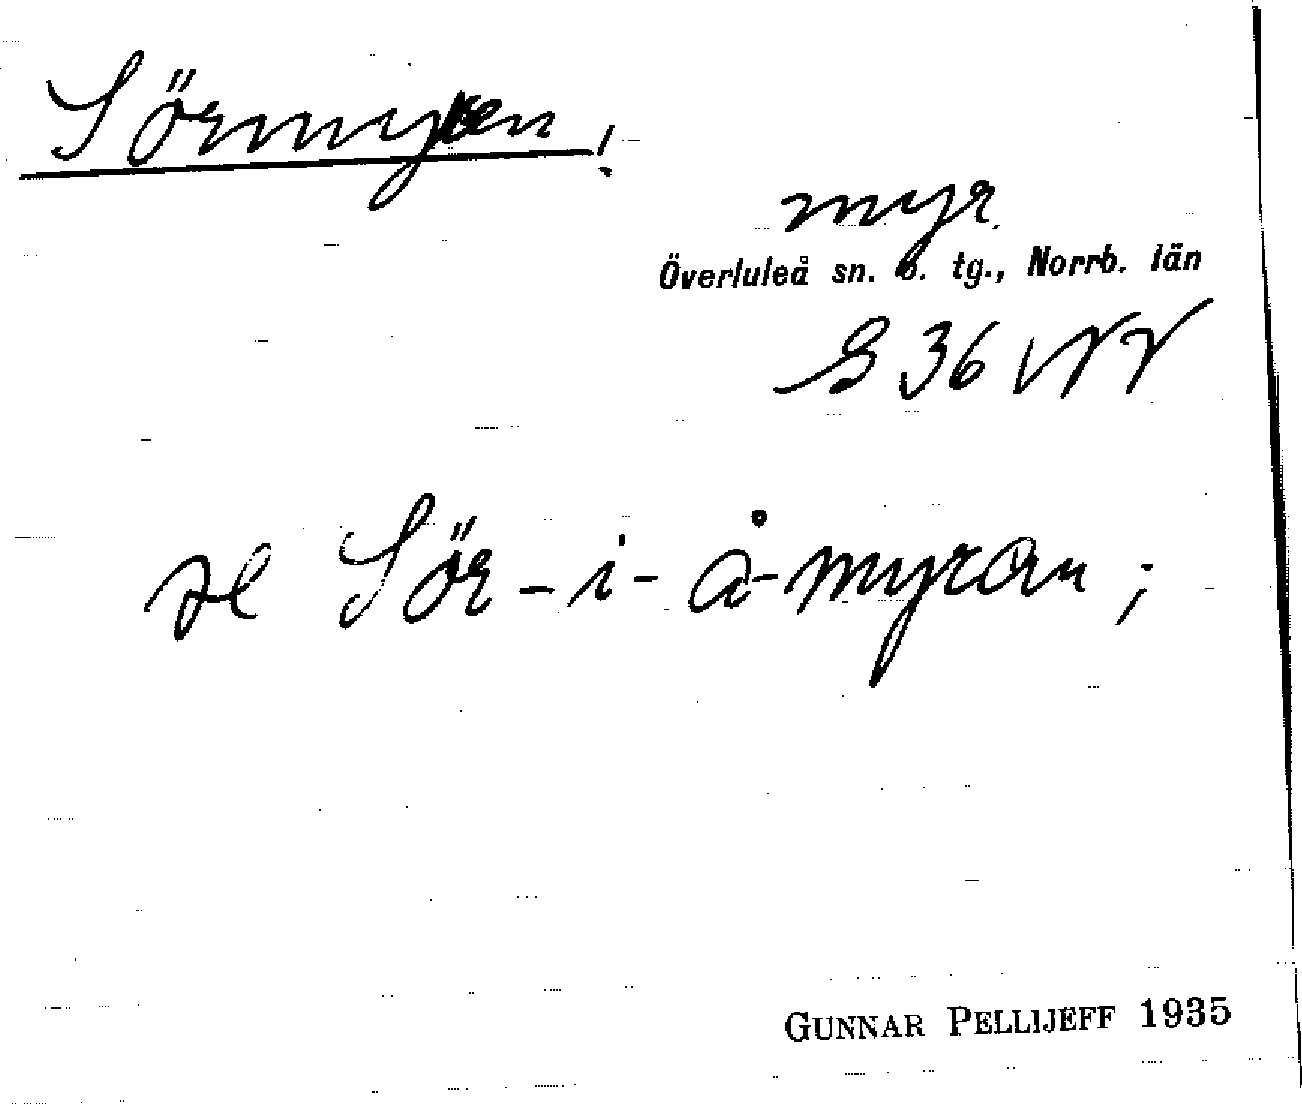 Sörmyren!
myr
Överluleå sn. o. tg., Norrb. län
S 36 NV
se Sör-i-å-myran;
GUNNAR PELLIJEFF 1935